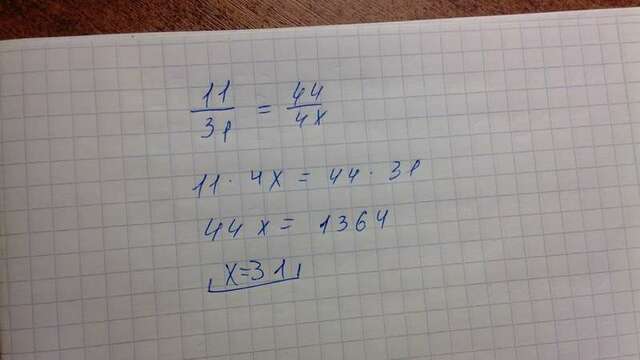 11/31 = 44/4x
11 · 4x = 44 · 31
44x = 1364
x=31